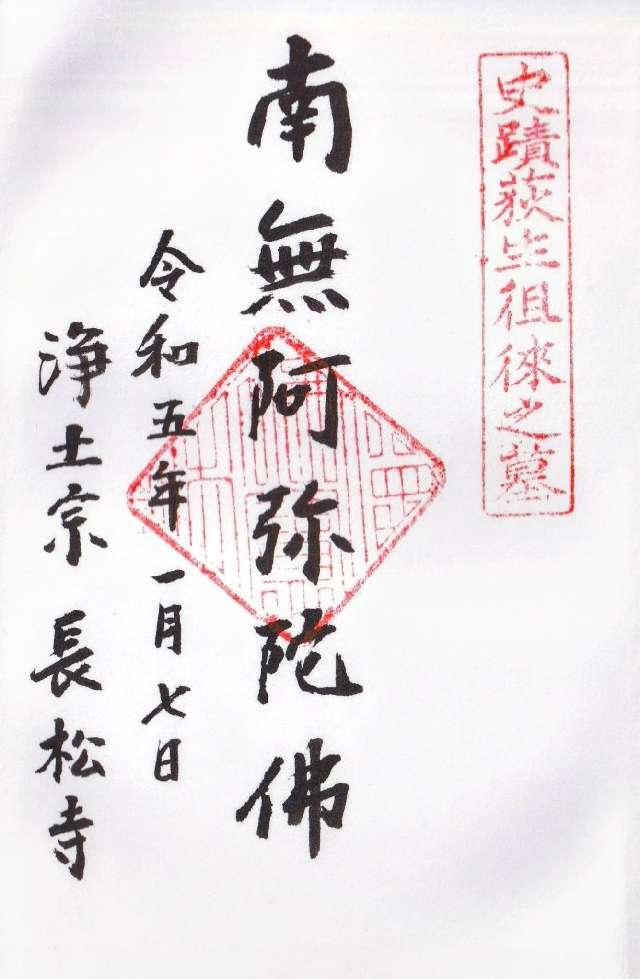 史蹟荻生徂徠之墓
南無阿弥陀佛
令和五年一月七日
浄土宗 長松寺